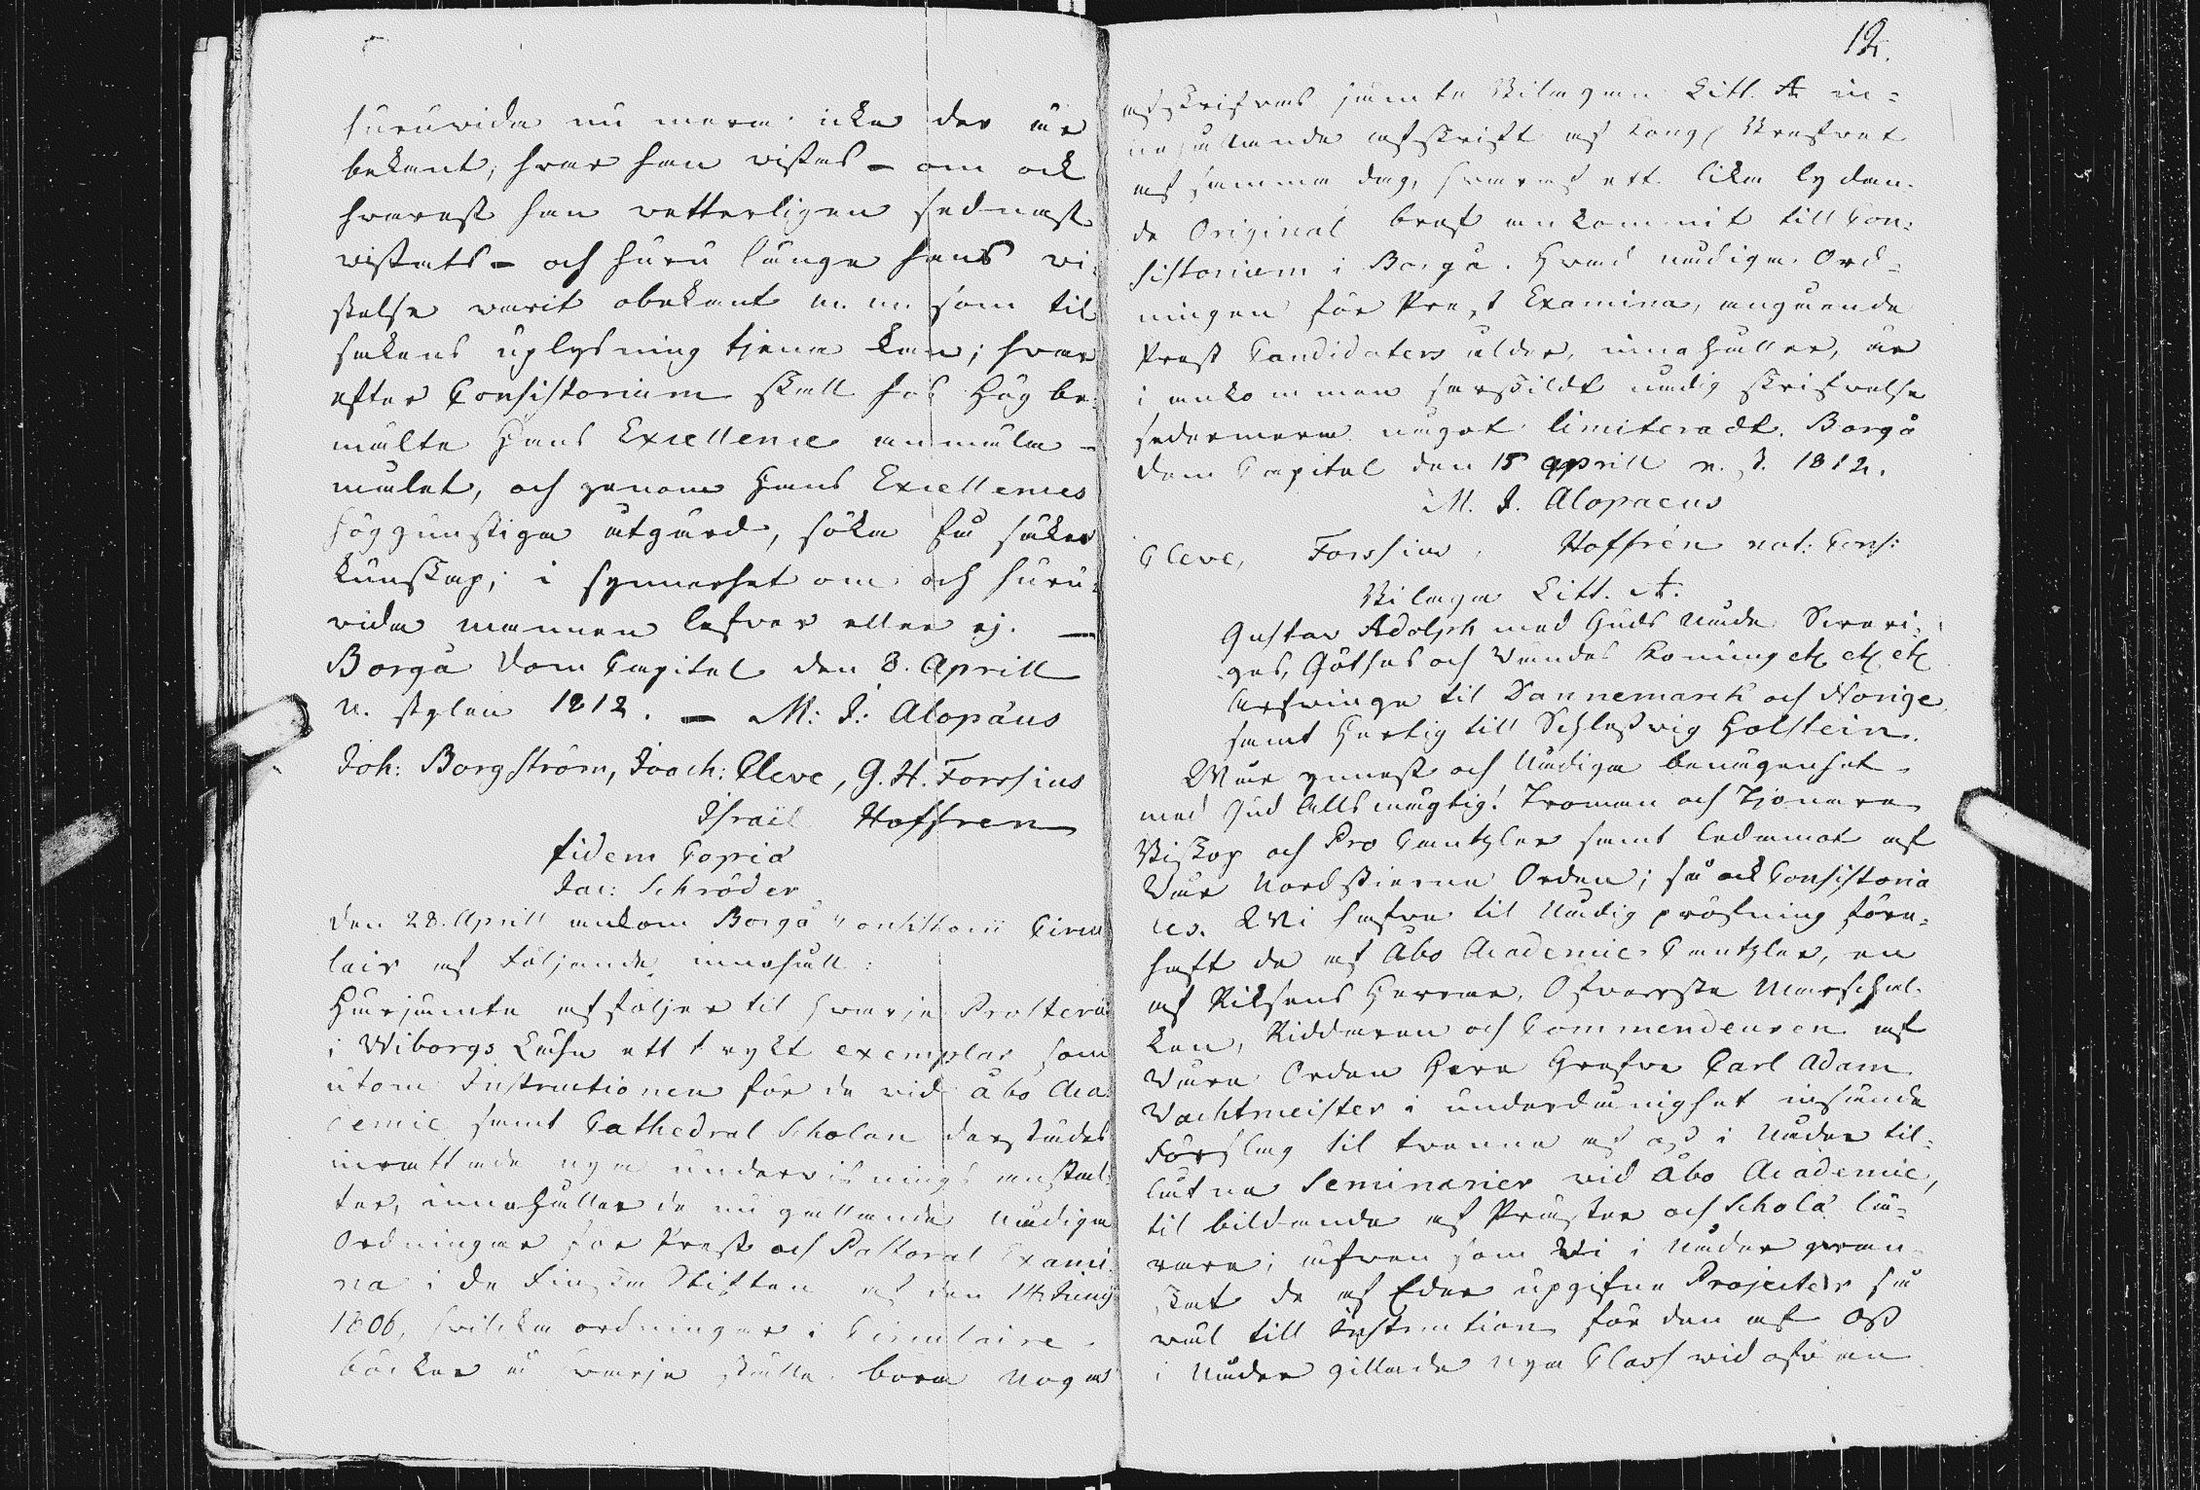 huruvida nu mera icke der är
bekant, hvar han vistas – om ock
hvarest han vetterligen sednast
vistats – och huru länge hans vi-
stelse varit obekant m. m. som til
sakens uplysning tjena kan; hvar
efter Consistorium skall hos Högbe-
mälte Hans Excellence anmäla –
målet, och genom Hans Excellences
höggunstiga åtgärd, söka få säker
kunskap, i synnerhet om och huru-
vida mannen lefver eller ej. —
Borgå Dom Capitel den 8. Aprill
n. stylen 1812. — M: J: Alopæus
Joh: Borgström, Joach: Cleve, G. H. Forssius
Israël Hoffren
fidem Copiæ
Jac: Schröder
Den 28. Aprill ankom Borgå Consistorii Circu
lair af följande innehåll:
Härjämte afföljer til hwarje Prosteri
i Wiborgs Lähn ett tryckt exemplar, som
utom Instructionen för de vid Åbo Aca
demie samt Cathedral Scholan derstädes
inrättade nya undervisnings anstal-
ter, innehåller de nu gällande Nådiga
Ordningar för Prest och Pastoral Exami
na i de Finska Stiften af den 14 Junij
1806, hvilka ordningar i Circulaire
böcker å hwarje ställe böra noga
12.
afskrifwas jämte Bilagan Litt. A in-
nehållande afskrift af Kongl. Brefwet
af samma dag, hwaraf ett lika lydan-
de Original bref ankommit till Con-
sistorium i Borgå. Hwad nådiga Ord-
ningen för Prest Examina, angående
Prest Candidaters ålder, innehåller, är
i ankommen särskildt nådig skrifwelse
sedermera något limiteradt. Borgå
Dom Capitel den 15 Aprill n. s. 1812.
M. J. Alopaeus
Cleve, Forssius, Hoffrén not: Cons:
Bilaga Litt. A.
Gustav Adolph med Guds Nåde Sweri-
ges, Göthes och Wendes Konung etc etc etc
Arfwinge til Dannemark och Norige
samt Hertig till Schleswig Holstein.
Wår ynnest och Nådiga benägenhet
med Gud Allsmägtig! Troman och Tjenare
Biskop och Pro Cantzler samt Ledamot af
Wår Nordstjerne Orden; så ock Consistoria
les. Wi hafwe til Nådig pröfning före-
haft de af Åbo Academies Cantzler, en
af Riksens Herrar, Öfwerste Marschal-
ken, Riddaren och Commendeuren af
Wåra Orden Herr Grefwe Carl Adam
Wachtmeister i underdånighet insände
Förslag til twenne af oss i Nåder til-
låtne Seminarier wid Åbo Academie,
til bildande af Präster och Scholæ lä-
rare; äfwen som Wi i Nåder gran-
skat de af Eder upgifne Projecter så
wäl till Instruction för den af Oss
i Nåder gillade nya Class wid ofwan